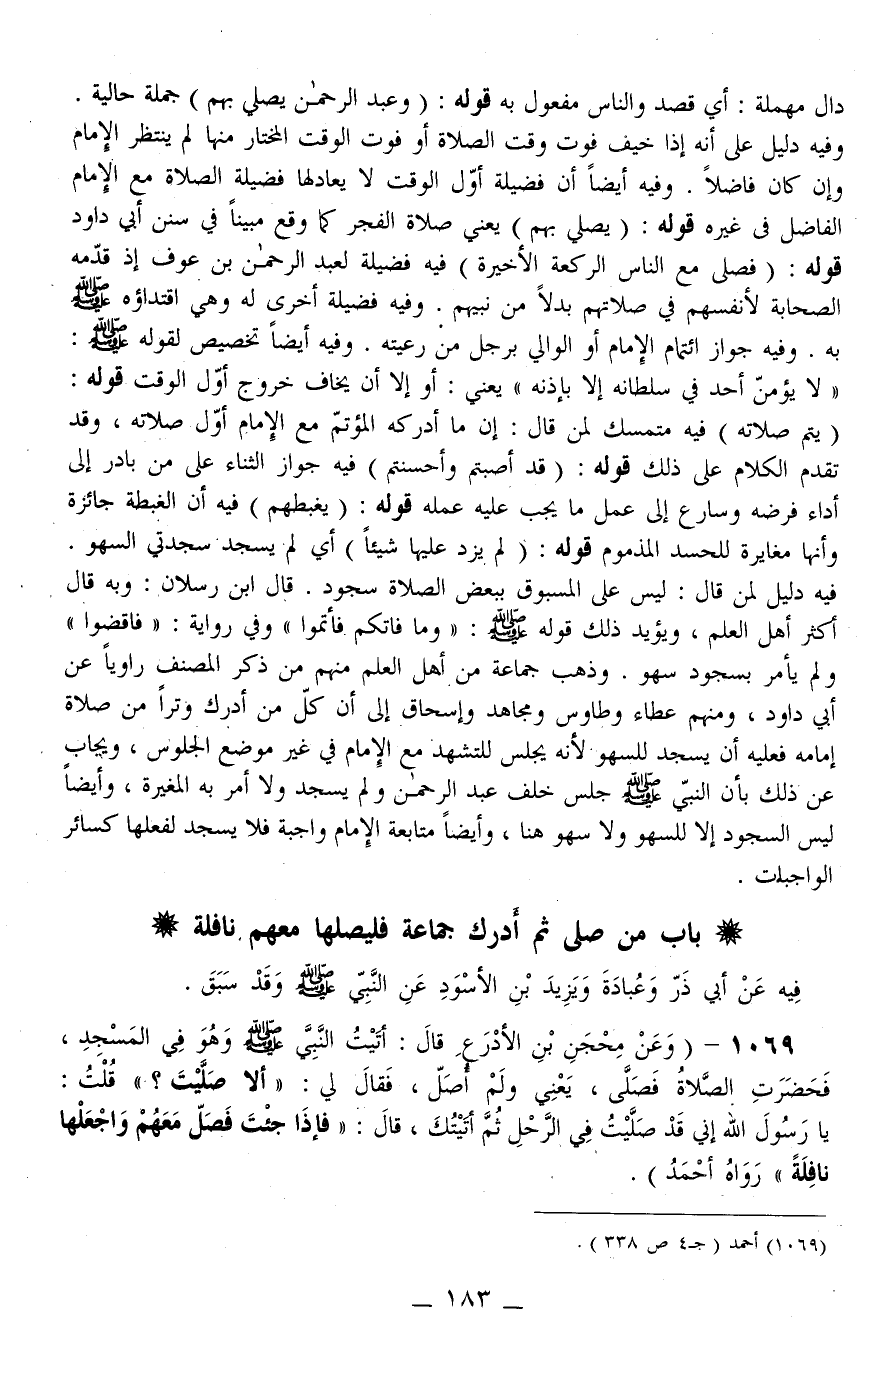 دال مهملة : أي قصد والناس مفعول به قوله : ( وعبد الرحمٰن يصلي بهم ) جملة حالية .
وفيه دليل على أنه إذا خيف فوت وقت الصلاة أو فوت الوقت المختار منها لم ينتظر الإمام
وإن كان فاضلاً . وفيه أيضاً أن فضيلة أوّل الوقت لا يعادلها فضيلة الصلاة مع الإمام
الفاضل فى غيره قوله : ( يصلي بهم ) يعني صلاة الفجر كما وقع مبيناً في سنن أبي داود
قوله : ( فصلى مع الناس الركعة الأخيرة ) فيه فضيلة لعبد الرحمٰن بن عوف إذ قدّمه
الصحابة لأنفسهم في صلاتهم بدلاً من نبيهم . وفيه فضيلة أخرى له وهي اقتداؤه ﷺ
به . وفيه جواز ائتمام الإمام أو الوالي برجل من رعيته . وفيه أيضاً تخصيص لقوله ﷺ :
« لا يؤمنّ أحد في سلطانه إلا بإذنه » يعني : أو إلا أن يخاف خروج أوّل الوقت قوله :
( يتم صلاته ) فيه متمسك لمن قال : إن ما أدركه المؤتمّ مع الإمام أوّل صلاته ، وقد
تقدم الكلام على ذلك قوله : ( قد أصبتم وأحسنتم ) فيه جواز الثناء على من بادر إلى
أداء فرضه وسارع إلى عمل ما يجب عليه عمله قوله : ( يغبطهم ) فيه أن الغبطة جائزة
وأنها مغايرة للحسد المذموم قوله : ( لم يزد عليها شيئاً ) أي لم يسجد سجدتي السهو .
فيه دليل لمن قال : ليس على المسبوق ببعض الصلاة سجود . قال ابن رسلان : وبه قال
أكثر أهل العلم ، ويؤيد ذلك قوله ﷺ : « وما فاتكم فأتموا » وفي رواية : « فاقضوا »
ولم يأمر بسجود سهو . وذهب جماعة من أهل العلم منهم من ذكر المصنف راوياً عن
أبي داود ، ومنهم عطاء وطاوس ومجاهد وإسحاق إلى أن كلّ من أدرك وتراً من صلاة
إمامه فعليه أن يسجد للسهو لأنه يجلس للتشهد مع الإمام في غير موضع الجلوس ، ويجاب
عن ذلك بأن النبيّ ﷺ جلس خلف عبد الرحمٰن ولم يسجد ولا أمر به المغيرة ، وأيضاً
ليس السجود إلا للسهو ولا سهو هنا ، وأيضاً متابعة الإمام واجبة فلا يسجد لفعلها كسائر
الواجبات .
باب من صلى ثم أَدرك جماعة فليصلها معهم نافلة
فِيه عَنْ أبي ذَرّ وَعُبادَةَ وَيَزِيدَ بْنِ الأسْوَدِ عَنِ النَّبِيّ ﷺ وَقَدْ سَبَقَ .
١٠٦٩ – ( وَعَنْ مِحْجَنِ بْنِ الأَدْرَعِ قالَ : أتَيْتُ النَّبِيَّ ﷺ وَهُوَ فِي المَسْجِدِ ،
فَحَضَرَتِ الصَّلاةُ فَصَلَّى ، يَعْنِي ولَمْ أُصَلّ ، فَقالَ لي : « ألا صَلَّيْتَ ؟ » قُلْتُ :
يا رَسُولَ الله إني قَدْ صَلَّيْتُ فِي الرَّحْلِ ثُمَّ أتَيْتُكَ ، قالَ : « فإذَا جئْتَ فَصَلّ مَعَهُمْ وَاجْعَلْها
نافِلَةً » رَوَاهُ أحْمَدُ ) .
(١٠٦٩) أحمد ( جـ٤ ص ٣٣٨ ) .
– ١٨٣ –